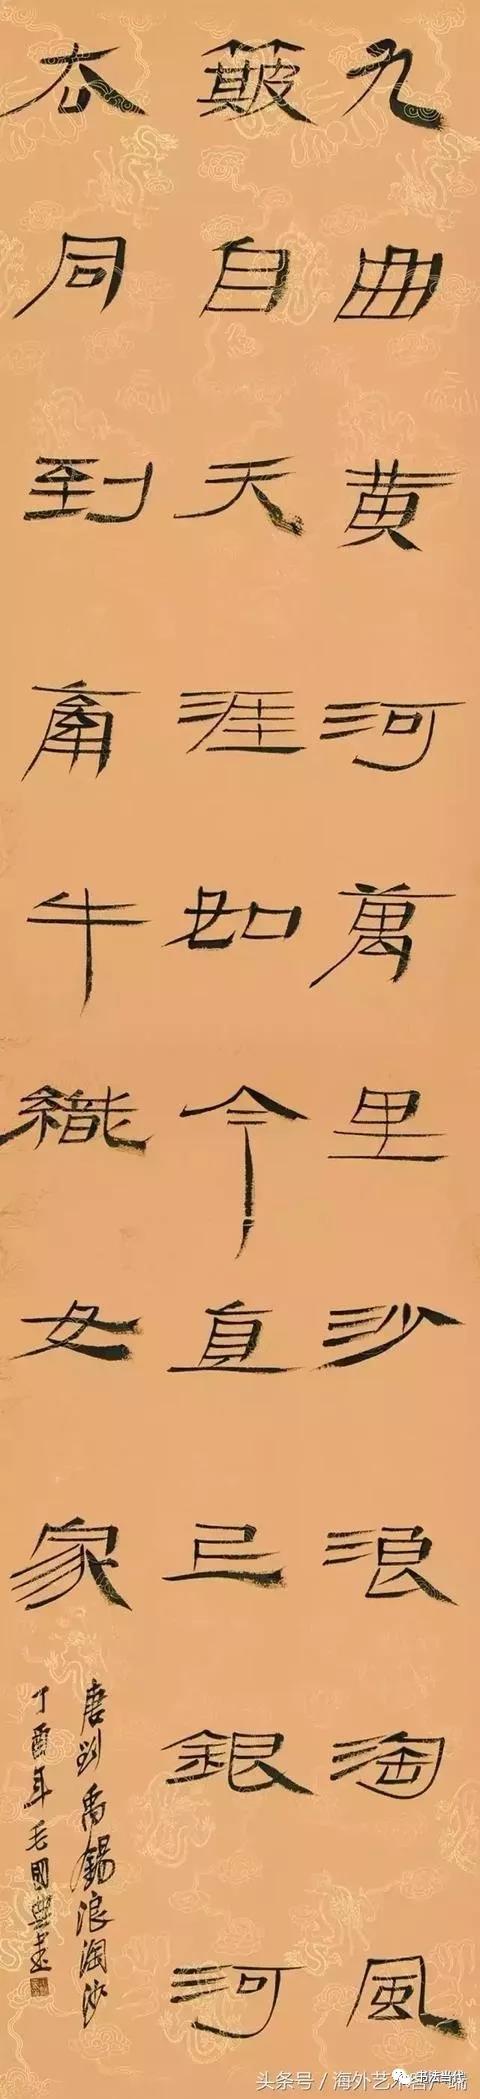 九曲黄河萬里沙浪淘風
簸自天涯如今直已銀河
去同到牽牛織女家
唐刘禹錫浪淘沙
丁酉年毛國典書
头条号/海外艺术客户端
书法当代